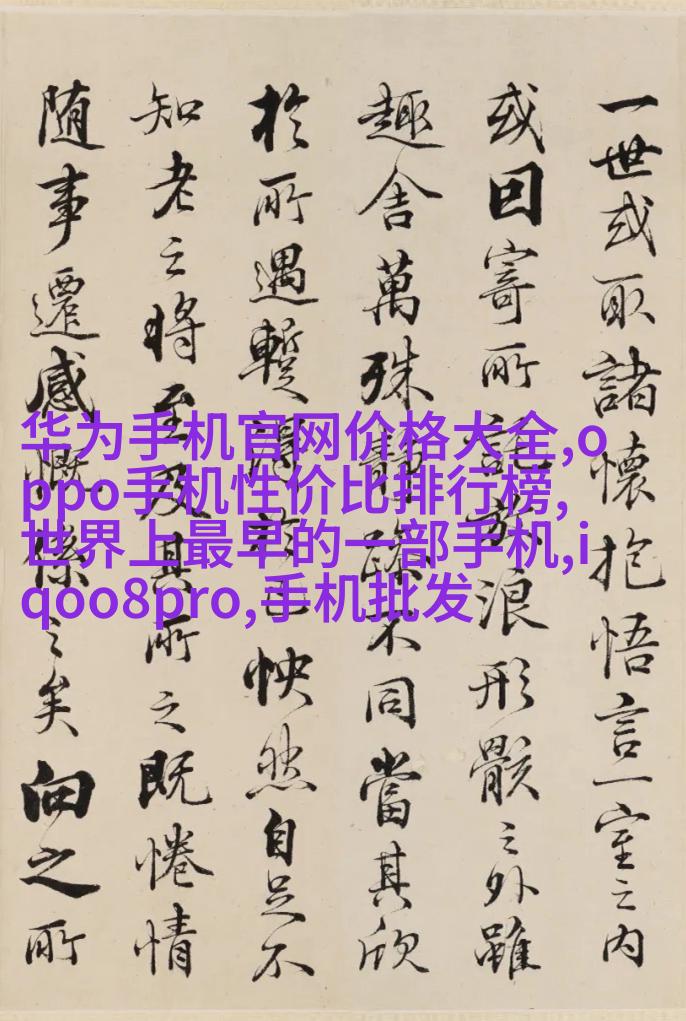 一世或取諸懷抱悟言一室之內
或因寄所託放浪形骸之外雖
趣舍萬殊靜躁不同當其欣
於所遇暫得於己怏然自足不
知老之將至及其所之既惓情
随事遷感慨係之矣向之所
华为手机官网价格大全,o
ppo手机性价比排行榜,
世界上最早的一部手机,i
qoo8pro,手机批发